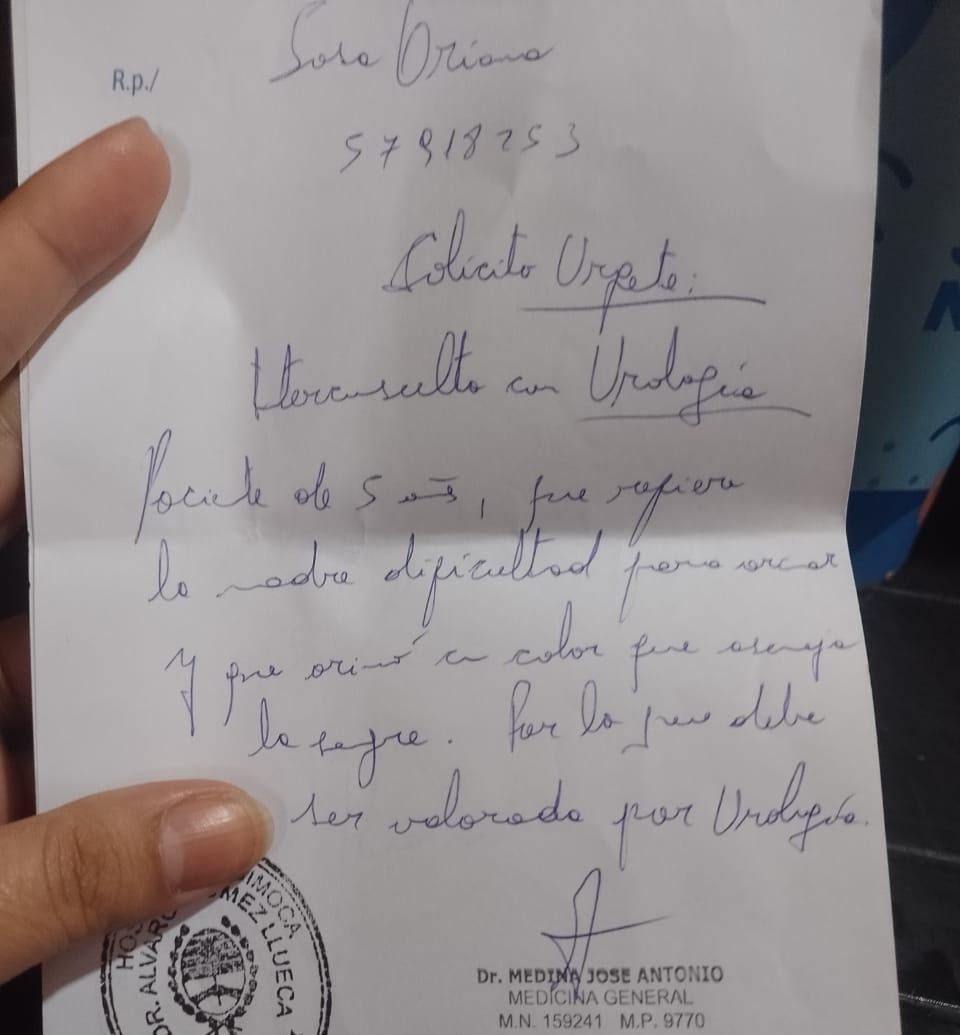 Sosa Oriana
R.p./
57918253
Solicito Urgete:
Iterconsulta con Urología
Paciete de 5 años, que refiere
la madre dificultad para orinar
y que orinó un color que aseneja
la sangre. Por lo que debe
ser valorada por Urología.
HOS IMOCA
DR. ALVAR MEZ LLUECA
Dr. MEDINA JOSE ANTONIO
MEDICINA GENERAL
M.N. 159241 M.P. 9770